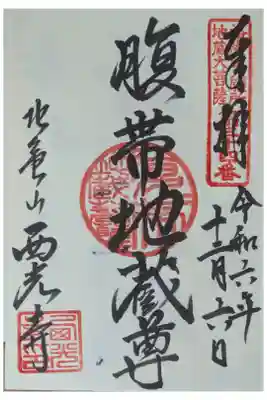 奉拝
令和六年
十二月六日
腹帯地蔵尊
地竜山 西光寺
地蔵大菩薩